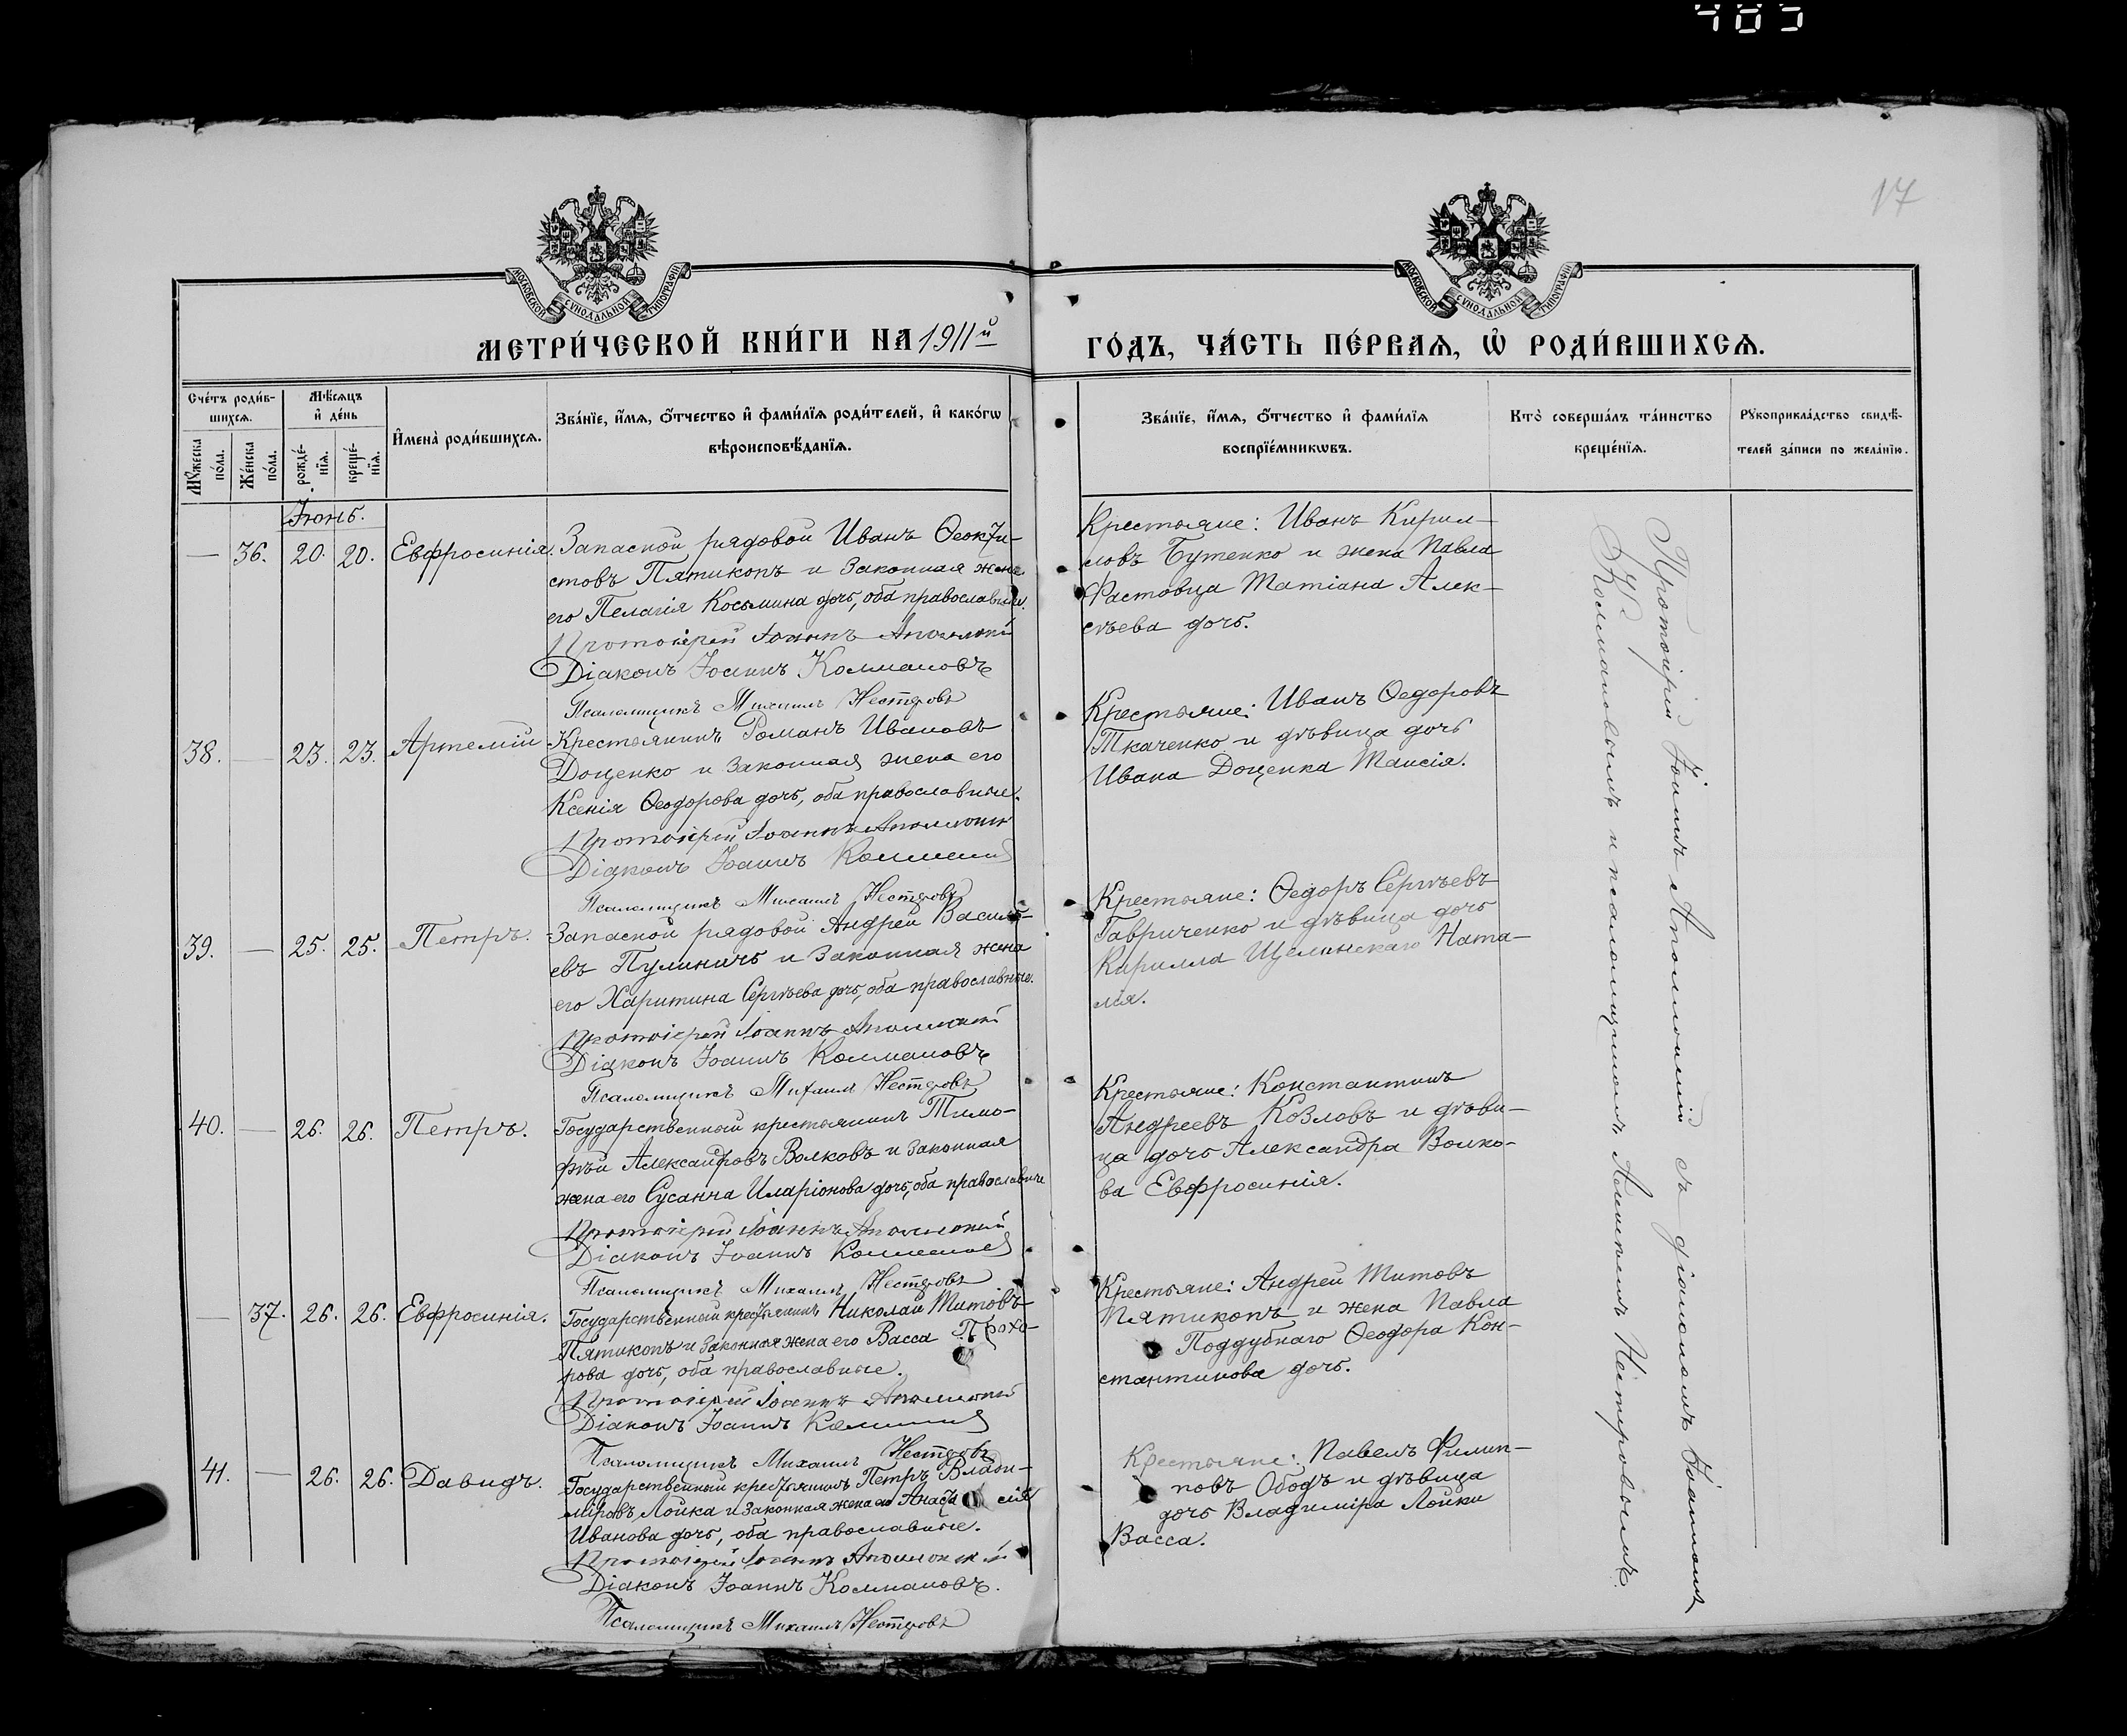 17
МОСКОВСКОЙ СѴНОДАЛЬНОЙ ТИПОГРАФІИ
МОСКОВСКОЙ СѴНОДАЛЬНОЙ ТИПОГРАФІИ
МЕТРИ́ЧЕСКОЙ КНИ́ГИ НА 1911й
ГО́ДЪ, ЧА́СТЬ ПЕ́РВАѦ, Ѡ҆ РОДИ́ВШИХСѦ.
Сче́тъ роди́в-
шихсѧ.
Мꙋжеска
по́ла.
Же́нска
по́ла.
Мѣ́сѧцъ
и҆ де́нь
рожде́-
нїѧ.
креще́-
нїѧ.
И҆мена̀ роди́вшихсѧ.
Зва́нїе, и҆́мѧ, о҆́тчество и҆ фами́лїѧ роди́телей, и҆ како́гѡ
вѣроисповѣ́данїѧ.
Зва́нїе, и҆́мѧ, о҆́тчество и҆ фами́лїѧ
воспрїе́мникѡвъ.
Кто̀ соверша́лъ та́инство
креще́нїѧ.
Рꙋкоприкла́дство свидѣ́-
телей за́писи по жела́нїю.
Іюнь.
— 36. 20. 20. Евфросинія.
Запасной рядовой Иванъ Ѳеокти-
стовъ Пятикопъ и законная жена
его Пелагія Косьмина дочь, оба православные.
Протоіерей Іоаннъ
Діаконъ Іоаннъ Колмановъ
Псаломщикъ Михаилъ Нестеровъ
Крестьяне: Иванъ Кирил-
ловъ Бутенко и жена Павла
Фастовца Татіана Алек-
сѣева дочь.
38. — 23. 23. Артемій
Крестьянинъ Романъ Ивановъ
Доценко и законная жена его
Ксенія Ѳеодорова дочь, оба православные.
Протоіерей Іоаннъ
Діаконъ Іоаннъ
Псаломщикъ Михаилъ Нестеровъ
Крестьяне: Иванъ Ѳедоровъ
Ткаченко и дѣвица дочь
Ивана Доценка Таисія.
39. — 25. 25. Петръ.
Запасной рядовой Андрей Василь-
евъ Пулиничъ и законная жена
его Харитина Сергѣева дочь, оба православные.
Протоіерей Іоаннъ
Діаконъ Іоаннъ Колмановъ
Псаломщикъ Михаилъ Нестеровъ
Крестьяне: Ѳедоръ Сергѣевъ
Гавриченко и дѣвица дочь
Кирилла Щелинскаго Ната-
лія.
40. — 26. 26. Петръ.
Государственный крестьянинъ Тимо-
фѣй Александровъ Волковъ и законная
жена его Сусанна Иларіонова дочь, оба православные
Протоіерей Іоаннъ
Діаконъ Іоаннъ
Псаломщикъ Михаилъ Нестеровъ
Крестьяне: Константинъ
Андреевъ Козловъ и дѣви-
ца дочь Александра Волко-
ва Евфросинія.
— 37. 26. 26. Евфросинія.
Государственный крестьянинъ Николай Титовъ
Пятикопъ и законная жена его Васса Прохо-
рова дочь, оба православные.
Протоіерей Іоаннъ
Діаконъ Іоаннъ
Псаломщикъ Михаилъ Нестеровъ
Крестьяне: Андрей Титовъ
Пятикопъ и жена Павла
Поддубнаго Ѳеодора Кон-
стантинова дочь.
41. — 26. 26. Давидъ.
Государственный крестьянинъ Петръ Влади-
міровъ Лойка и законная жена его Анаста сія
Иванова дочь, оба православные.
Протоіерей Іоаннъ
Діаконъ Іоаннъ Колмановъ.
Псаломщикъ Михаилъ Нестеровъ
Крестьяне: Павелъ Филип-
повъ Ободъ и дѣвица
дочь Владиміра Лойки
Васса.
Протоіерей Іоаннъ съ діакономъ Іоанномъ
Колмановымъ и псаломщикомъ Нестеровымъ.